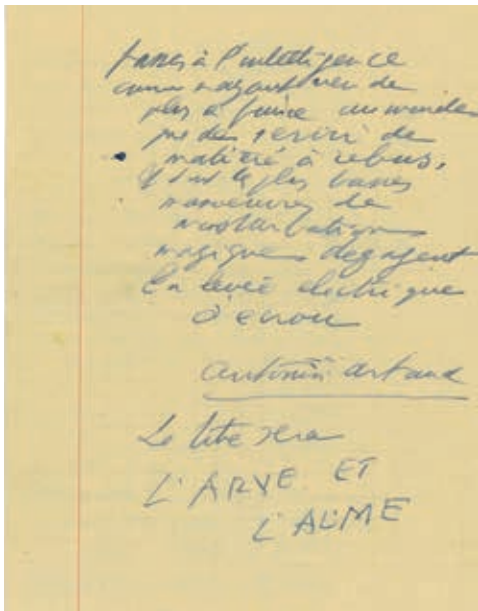 à l'intelligence
comme n'ayant rien de
plus à faire au monde
de servir de
matière à rebus,
et dont les plus basses
manœuvres de
masturbation
magique dégagent
la levée électrique
d'écrou
Antonin Artaud
Le titre sera
L'ARVE ET
L'AUME